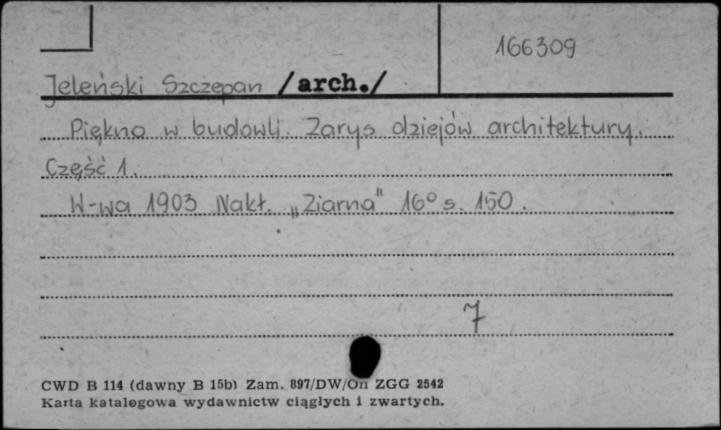 166309
Jeleński Szczepan /arch./
Piękno w budowli. Zarys dziejów architektury.
Część 1.
W-wa 1903 Nakł. „Ziarna" 16° s. 150.
7
CWD B 114 (dawny B 15b) Zam. 897/DW/On ZGG 2542
Karta katalogowa wydawnictw ciągłych i zwartych.